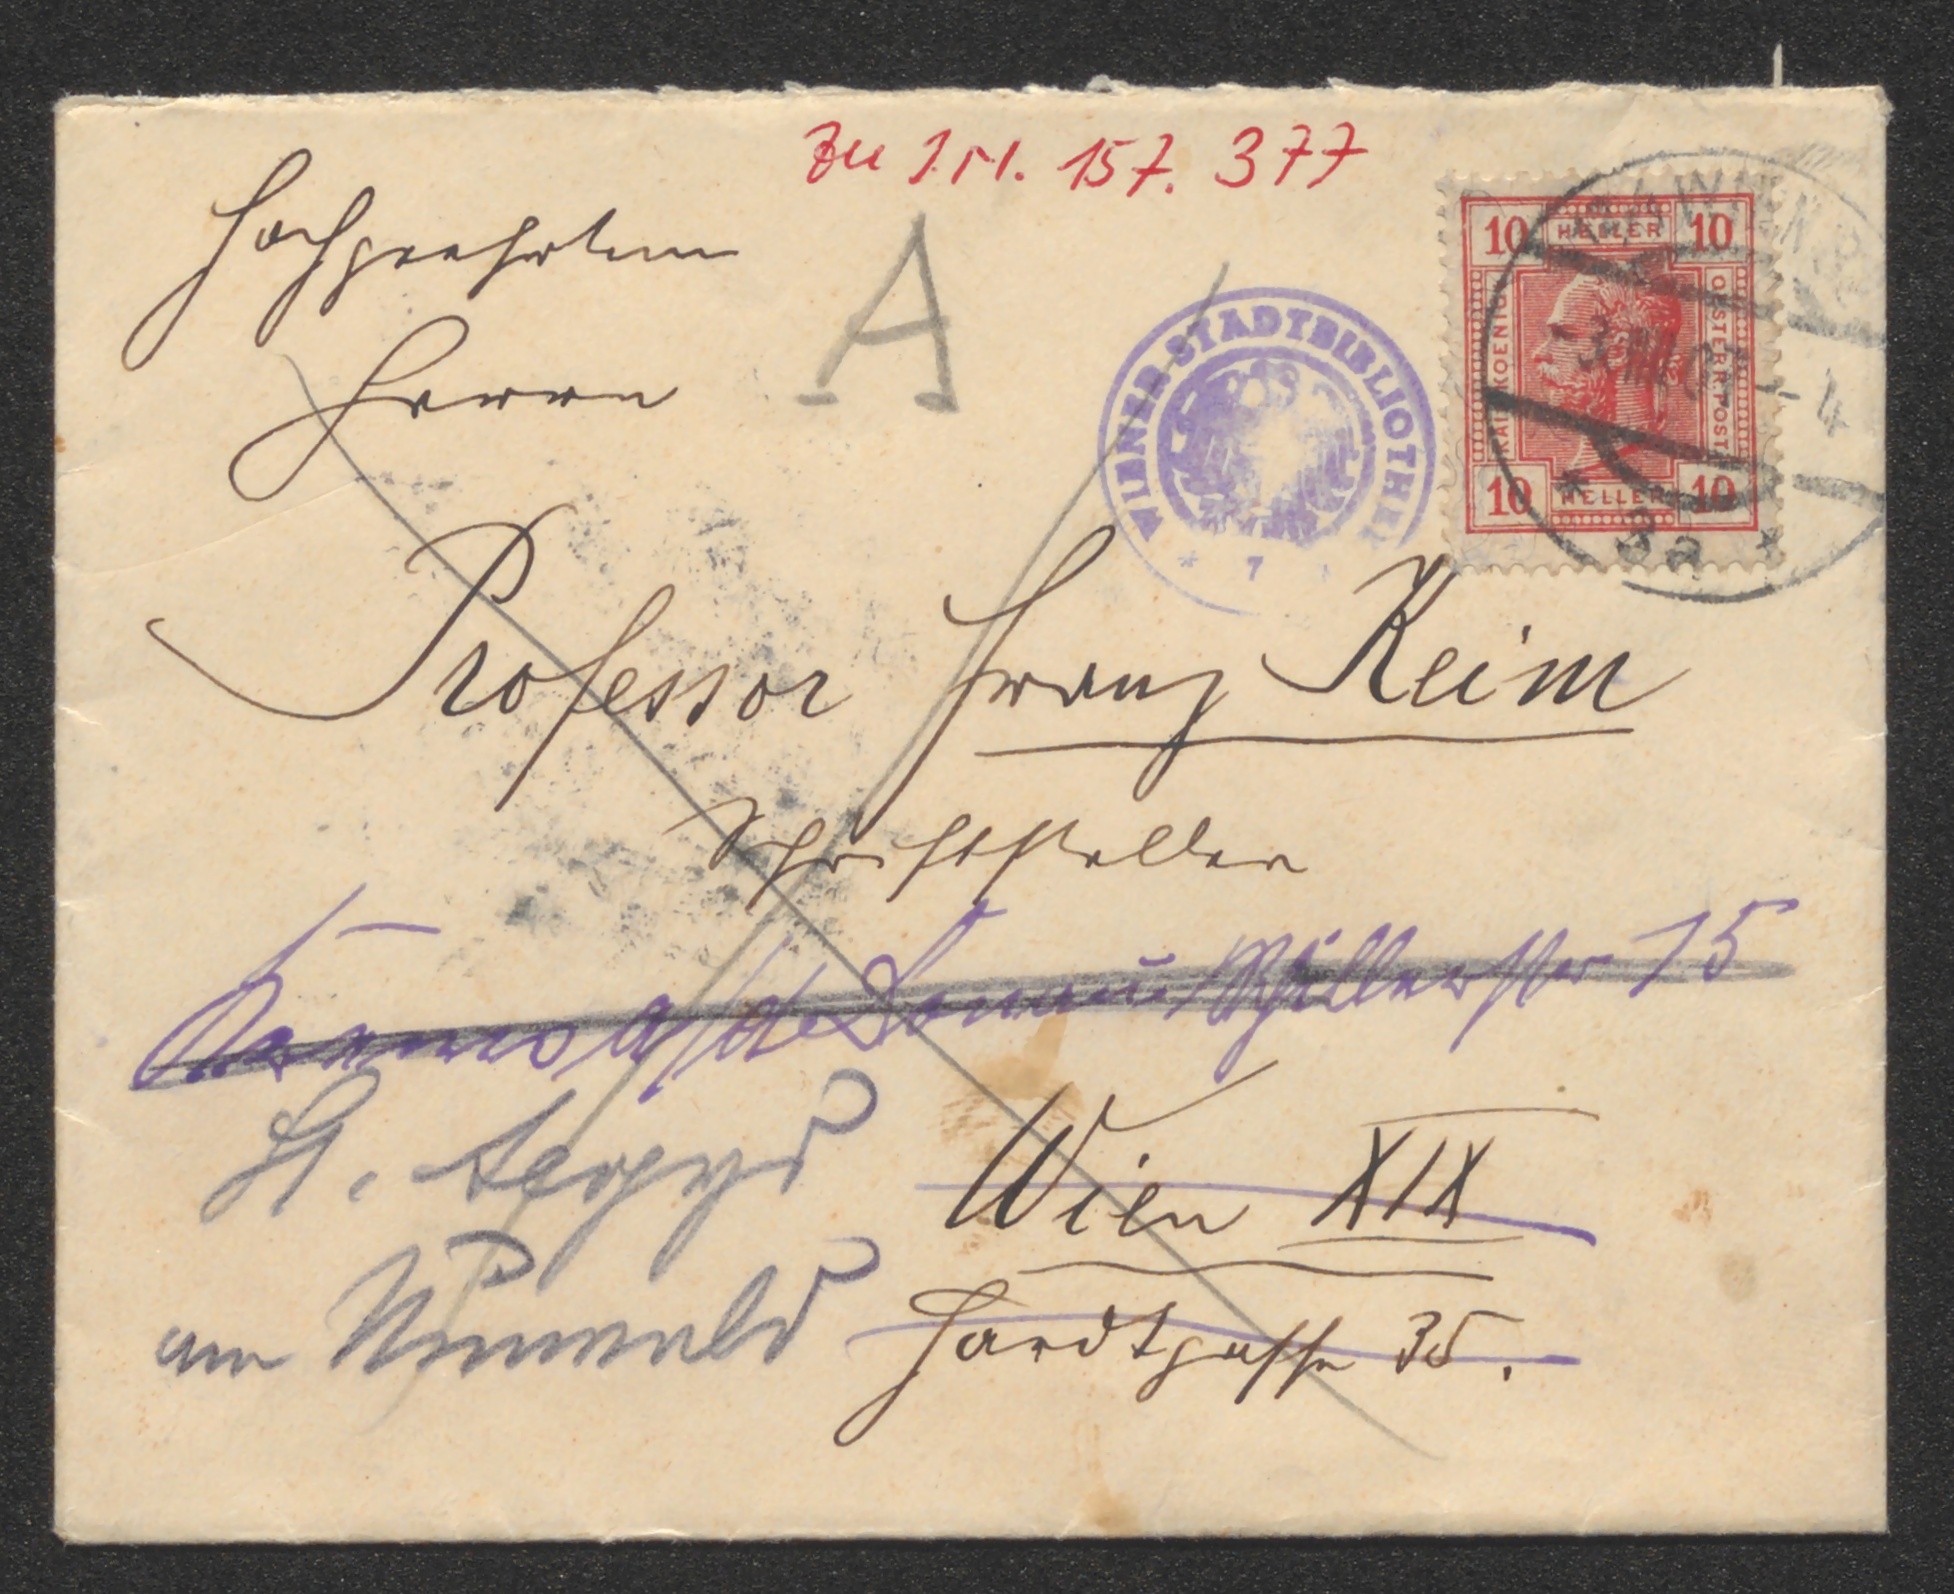 Zu I.N. 157.377
Hochgeehrten
Herrn
A
WIENER STADTBIBLIOTHEK
* 7 *
10 HELLER 10
KAIS. KOENIGL. OESTERR. POST
10 HELLER 10
WIEN
3.VIII.07 - 4
* 3a *
Professor Franz Keim
Schriftsteller
a/d Donau Schillerstr 15
St. Aegyd
am Neuwald
Wien XIX
Hardtgasse 35.